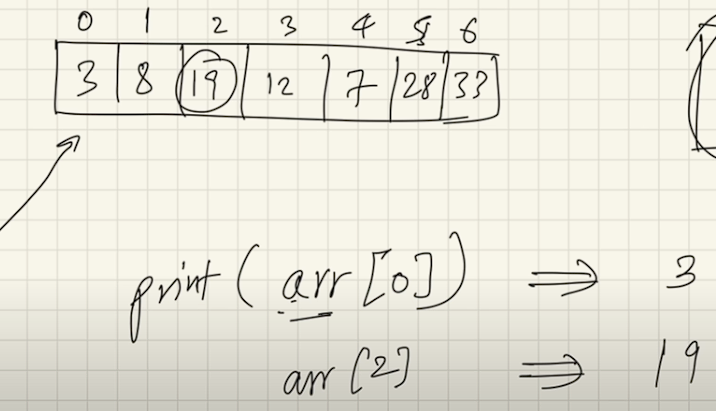 0 1 2 3 4 5 6
3 8 19 12 7 28 33
print(arr[0]) ⇒ 3
arr[2] ⇒ 19